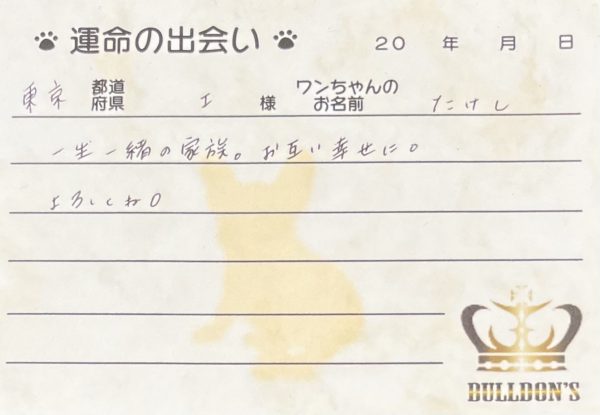 運命の出会い 20 年 月 日
東京 都道府県 I 様 ワンちゃんのお名前 たけし
一生一緒の家族。お互い幸せに。
よろしくね
BULLDON'S